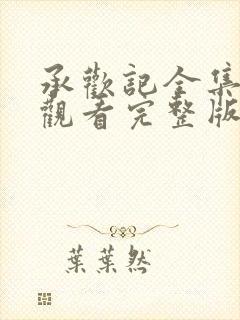 承歡記全集
觀看完整版
葉葉然